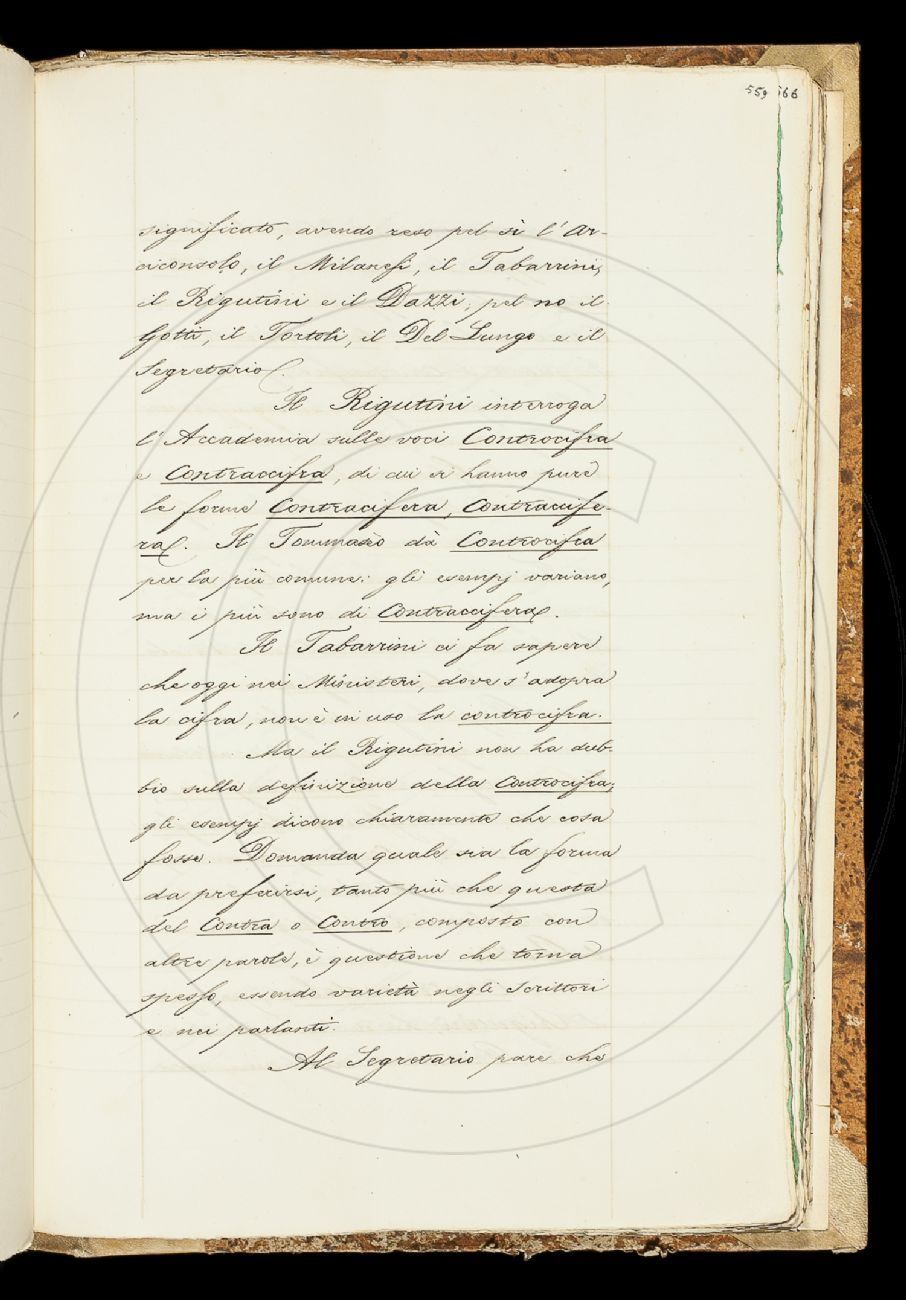 559 566
significato, avendo reso pel sì l'Ar-
ciconsolo, il Milanesi, il Tabarrini,
il Rigutini e il Dazzi; pel no il
Gotti, il Tortoli, il Del Lungo e il
Segretario.
Il Rigutini interroga
l'Accademia sulle voci Controcifra
e Contraccifra, di cui si hanno pure
le forme Contracifera, Contraccife-
ra. Il Tommaseo dà Controcifra
per la più comune: gli esempj variano,
ma i più sono di Contraccifera.
Il Tabarrini ci fa sapere
che oggi nei Ministeri, dove s'adopra
la cifra, non è in uso la controcifra.
Ma il Rigutini non ha dub-
bio sulla definizione della Controcifra;
gli esempj dicono chiaramente che cosa
fosse. Domanda quale sia la forma
da preferirsi, tanto più che questa
del Contra o Contro, composto con
altre parole, è questione che torna
spesso, essendo varietà negli Scrittori
e nei parlanti.
Al Segretario pare che